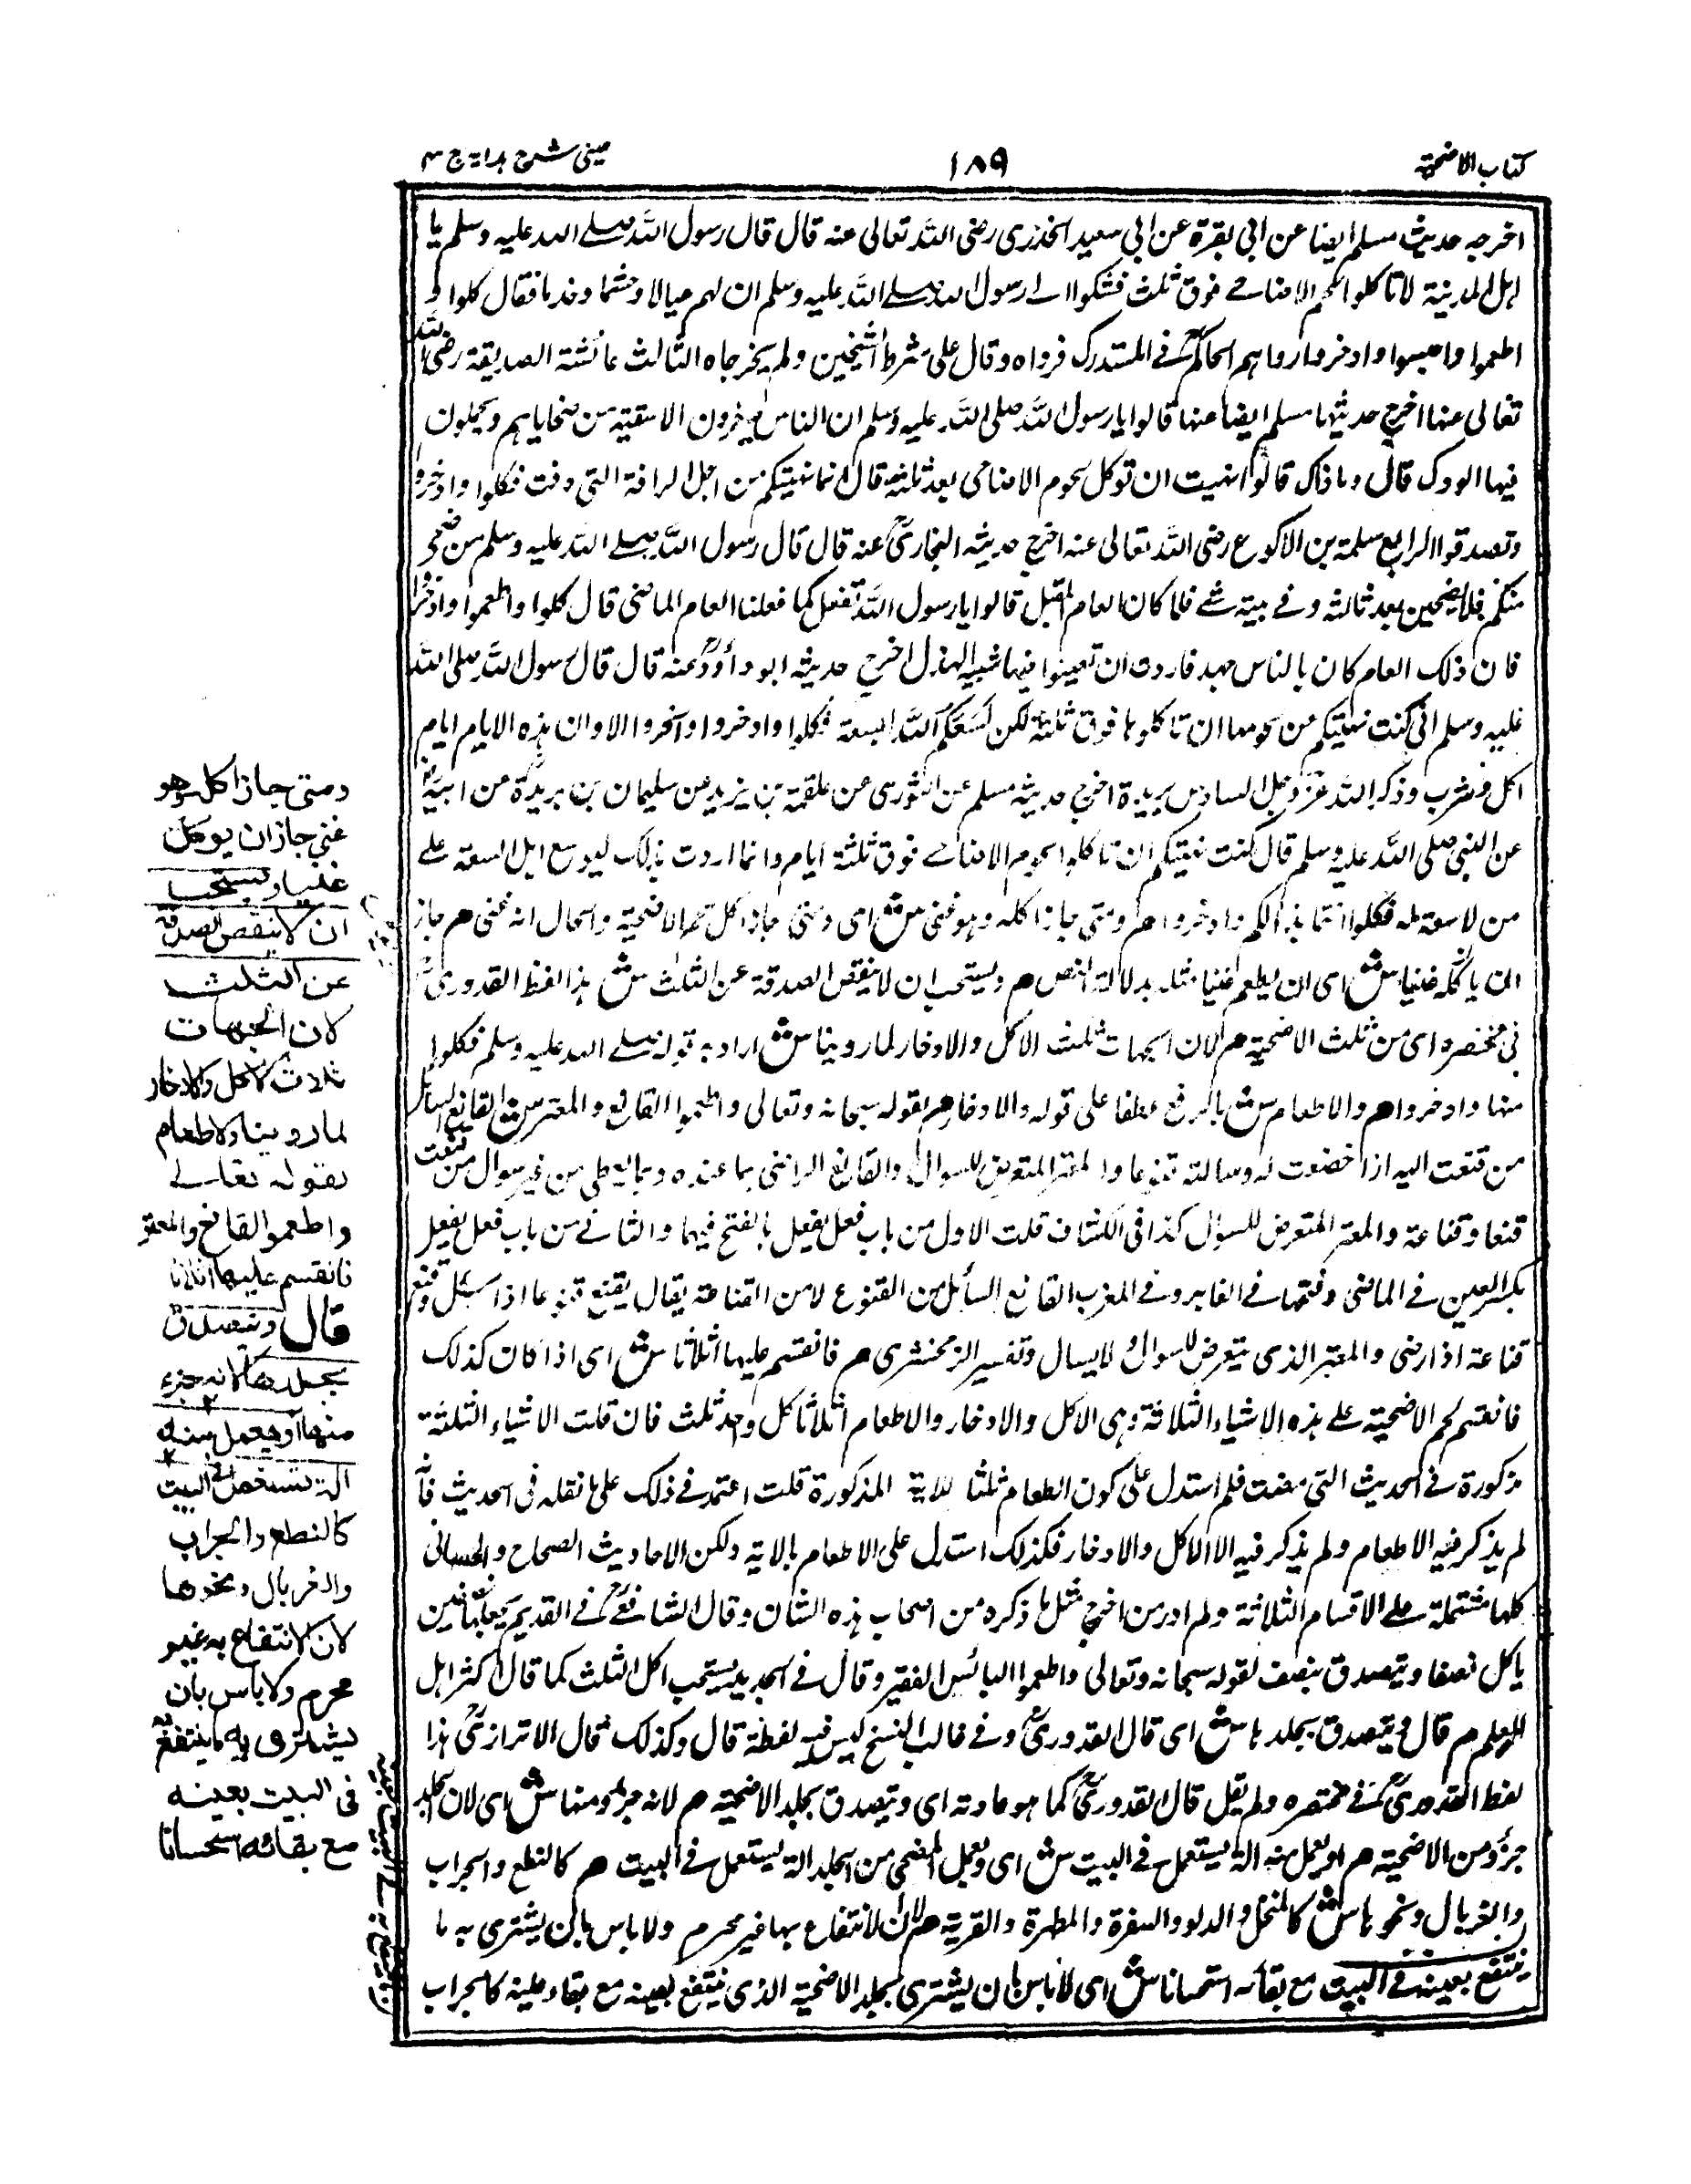 كتاب الاضحية
١٨٩
عينى شرح هداية ج ٣
اخرجه حديث مسلم ايضا عن ابى نضرة عن ابى سعيد الخدرى رضى الله تعالى عنه قال قال رسول الله صلے الله عليه وسلم يا
اهل المدينة لا تاكلوا لحم الاضاحے فوق ثلث فشكوا الے رسول الله صلے الله عليه وسلم ان لهم عيالا وحشما وخدما فقال كلوا و
اطعموا واحبسوا وادخروا رواهم الحاكمؒ فے المستدرك فرواه وقال على شرط الشيخين ولم يخرجاه الثالث عائشة الصديقة رضى الله
تعالى عنها اخرج حديثها مسلم ايضا عنها قالوا يا رسول الله صلى الله عليه وسلم ان الناس يتخذون الاسقية من ضحاياهم ويحملون
فيها الودك قال وما ذاك قالوا نهيت ان توكل لحوم الاضاحى بعد ثلثة قال انما نهيتكم من اجل الرافة التى دفت فكلوا وادخروا
وتصدقوا الرابع سلمة بن الاكوع رضى الله تعالى عنه اخرج حديثه البخارىؒ عنه قال قال رسول الله صلے الله عليه وسلم من ضحى
منكم فلا يضحين بعد ثالثة وفے بيته شے فلما كان العام المقبل قالوا يا رسول الله نفعل كما فعلنا العام الماضى قال كلوا واطعموا وادخروا
فان ذلك العام كان بالناس جهد فاردت ان تعينوا فيها نبيشة الهذلى اخرج حديثه ابو داؤدؒ عنه قال قال رسول الله صلى الله
عليه وسلم انى كنت نهيتكم عن لحومها ان تاكلوها فوق ثلثة لكن تسعكم الله السعة فكلوا وادخروا واتجروا الا وان هذه الايام ايام
اكل وشرب وذكر الله عز وجل السادس بريدة اخرج حديثه مسلم عن الثورى عن علقمة بن يزيد عن سليمان بن بريدة عن ابيه
عن النبى صلى الله عليه وسلم قال كنت نهيتكم ان تاكلوا لحوم الاضاحے فوق ثلثة ايام وانما اردت بذلك ليوسع اهل السعة علے
من لا سعة له فكلوا ما بدا لكم وادخروا هم ومتى جاز اكله وهو غنى ش اى ومتى جاز اكل لحم الاضحية والحال انه غنى هم جاز
ان ياكله غنيا ش اى ان يطعم غنيا مثله بدلالة النص هم ويستحب ان لا ينقص الصدقة عن الثلث ش هذا لفظ القدورىؒ
فى مختصره اى من ثلث الاضحية هم لان الجهات ثلث الاكل والادخار لما روينا ش اراد به قوله صلے الله عليه وسلم فكلوا
منها وادخروا هم والاطعام ش بالرفع عطفا على قوله والادخار هم لقوله سبحانه وتعالى واطعموا القانع والمعتر ش القانع السائل
من قنعت اليه اذا خضعت له وسالته قنوعا والمعتر المتعرض للسوال والقانع الراضى بما عنده وبما يعطى من غير سوال من قنعت
قنعا وقناعة والمعتر المتعرض للسوال كذا فى الكشاف قلت الاول من باب فعل يفعل بالفتح فيهما والثانے من باب فعل يفعل
بكسر العين فے الماضى وفتحها فے الغابر وفے المغرب القانع السائل من القنوع لا من القناعة يقال قنع يقنع قنوعا اذا سئل وقنع
قناعة اذا رضى والمعتر الذى يتعرض للسوال ولا يسال وتفسير الزمخشرى هم فانقسم عليها اثلاثا ش اى اذا كان كذلك
فانقسم لحم الاضحية علے هذه الاشياء الثلاثة وهى الاكل والادخار والاطعام اثلاثا كل واحد ثلث فان قلت الاشياء الثلثة
مذكورة فے الحديث التى مضت فلم استدل على كون الطعام ثلثا للاية المذكورة قلت اعتمد فے ذلك على ما نقله فى الحديث فانه
لم يذكر فيه الاطعام ولم يذكر فيه الا الاكل والادخار فكذلك استدل على الاطعام بالاية ولكن الاحاديث الصحاح والحسان
كلها مشتملة علے الاقسام الثلاثة ولم ادر من اخرج مثل ما ذكره من اصحاب هذه الشان وقال الشافعےؒ فے القديم يجعلها نصفين
ياكل نصفا ويتصدق بنصف لقوله سبحانه وتعالى واطعموا البائس الفقير وقال فے الجديد يستحب اكل الثلث كما قال اكثر اهل
العلم هم قال ويتصدق بجلدها ش اى قال القدورىؒ وفے غالب النسخ ليس فيه لفظة قال وكذلك قال الاترازىؒ هذا
لفظ القدورىؒ فے مختصره ولم يقل قال القدورىؒ كما هو عادته اى ويتصدق بجلد الاضحية هم لانه جزؤ منها ش اى لان الجلد
جزؤ من الاضحية هم او يعمل منه الة يستعمل فے البيت ش اى ويعمل المضحى من الجلد الة يستعمل فے البيت هم كالنطع والجراب
والغربال ونحوها ش كالمنخل والدلو والسفرة والمطهرة والقربة هم لان الانتفاع بها غير محرم ولا باس بان يشترى به ما
ينتفع بعينه فے البيت مع بقائه استحسانا ش اى لا باس بان يشترى بجلد الاضحية الذى ينتفع بعينه مع بقاء عينه كالجراب
ومتى جاز اكله وهو
غنى جاز ان يوكل
غنيا ويستحب
ان لا ينقص الصدقة
عن الثلث
لان الجهات
ثلاث الاكل والادخار
لما روينا والاطعام
لقوله تعالے
واطعموا القانع والمعتر
فانقسم عليها اثلاثا
قال ويتصدق
بجلدها لانه جزء
منها او يعمل منه
الة تستعمل فى البيت
كالنطع والجراب
والغربال ونحوها
لان الانتفاع به غير
محرم ولا باس بان
يشترى به ما ينتفع به
فى البيت بعينه
مع بقائه استحسانا